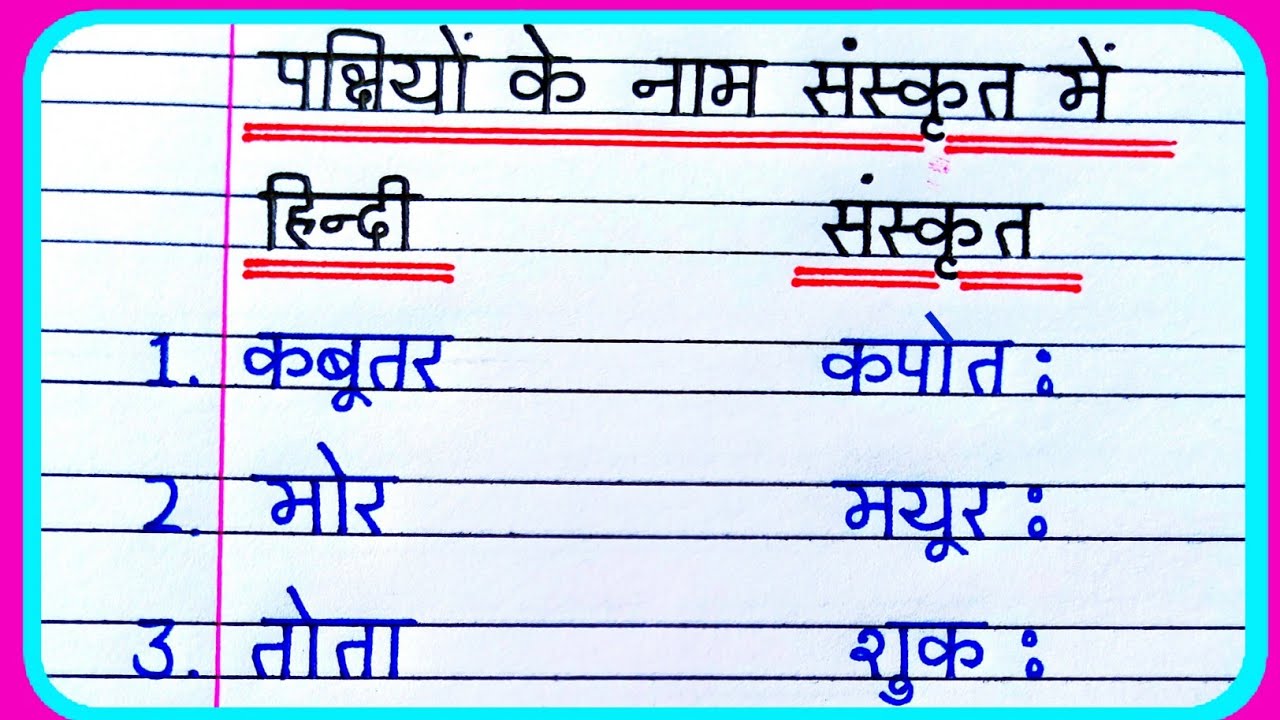 पक्षियों के नाम संस्कृत में
हिन्दी संस्कृत
1. कबूतर कपोत :
2. मोर मयूर :
3. तोता शुक :